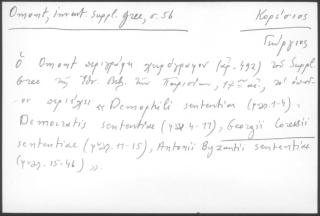 Omont, invent. suppl. grec, σ. 56
Κορέσσιος
Γεώργιος
Ὁ Omont περιγράφει χειρόγραφον (ἀρ. 492) τοῦ Suppl.
Grec τῆς Ἐθν. Βιβ. τῶν Παρισίων, 17ου αἰ., τὸ ὁποῖ-
ον περιέχει «Demophili sententiae (φφ. 1-4).
Democratis sententiae (φφ. 4-11), Georgii Coressii
sententiae (φφ. 11-15), Antonii Byzantii sententiae
(φφ. 15-46)».